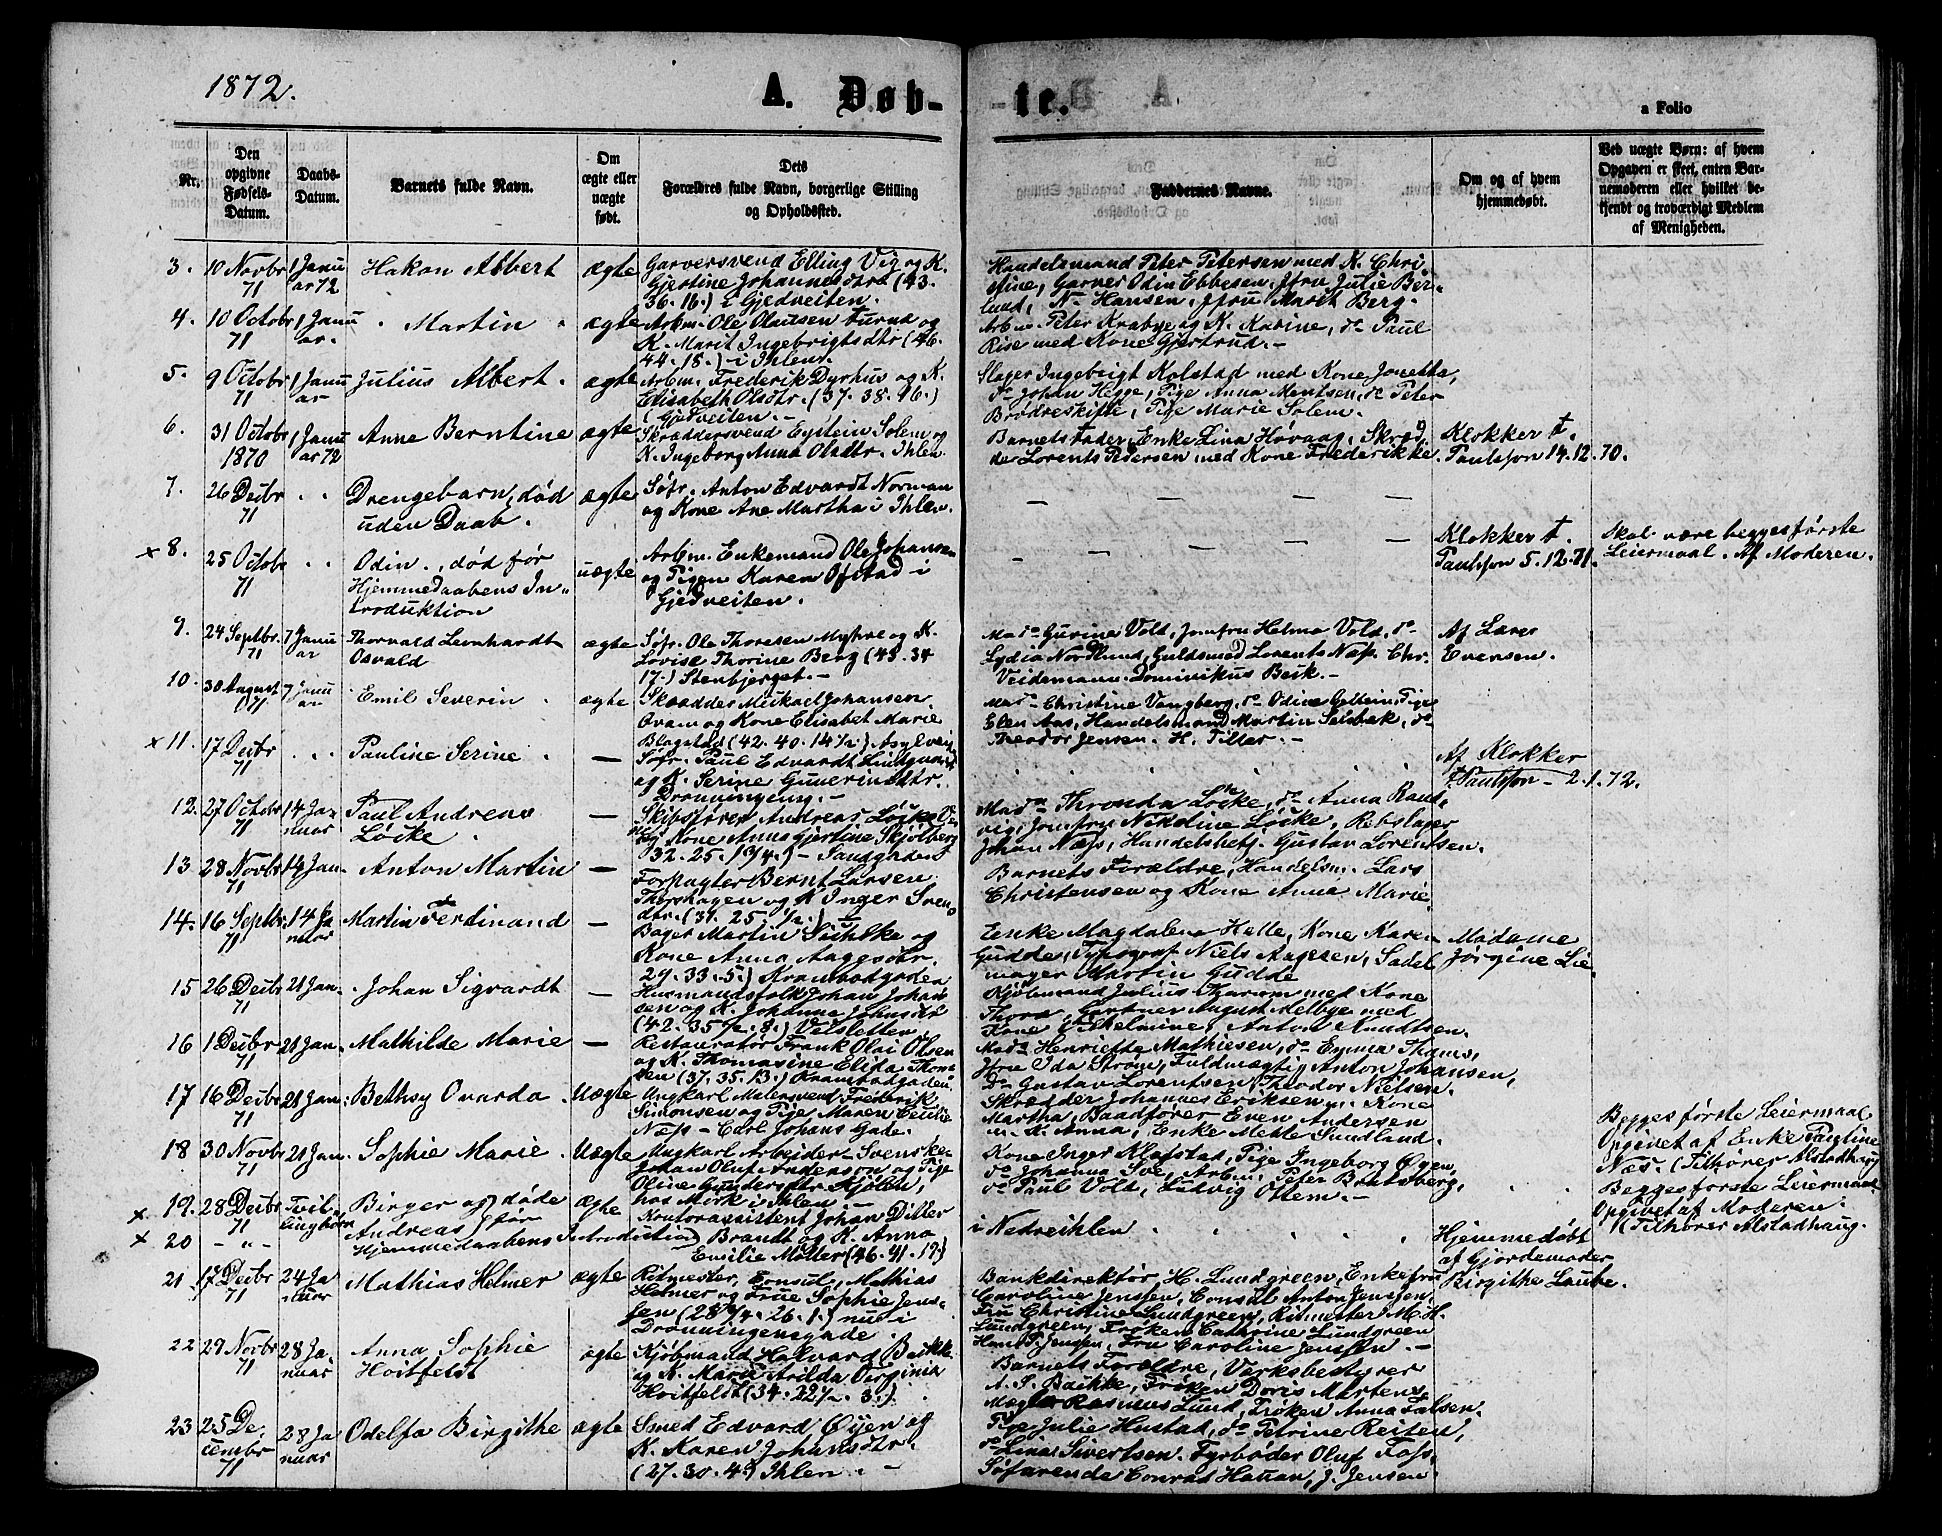 1872.
A. Døb-
-te.
a Folio
Nr.
Den opgivne Fødsels-Datum.
Daabs-Datum.
Barnets fulde Navn.
Om ægte eller uægte født.
Dets Forældres fulde Navn, borgerlige Stilling og Opholdssted.
Faddernes Navne.
Om og af hvem hjemmedøbt.
Ved uægte Børn: af hvem Opgaven er skeet, enten Barnemoderen eller hvilket bekjendt og troværdigt Medlem af Menigheden.
3. 10 Novbr 71 1 Januar 72 Hakon Albert ægte
Garversvend Elling Vig og K.
Gjertine Johannesdtr (43.
36. 16.) i Gjedveiten.
Handelsmand Peter Petersen med K. Chri-
stine, Garver Odin Ebbesen, Jfru Julie Ber-
lund, N. Hansen, Jfru Marit Berg.
4. 10 Octobr 71 1 Januar. Martin ægte
Arbm. Ole Olausen og
K. Marit Ingebrigtsdtr (46.
44. 18.) i Ihlen.
Arbm. Peter Krabye og K. Karine, do Paul
Rise med Kone Gjertrud.-
5. 9 Octobr 71 1 Januar Julius Albert. ægte
Arbm. Frederik Dyrhus og K.
Elisabeth Olsdtr. (37. 38. 96.)
Gjedveiten.-
Slager Ingebrigt Kolstad med Kone Jonetta,
do Johan Hegge, Pige Anna Mentsen, do Peter
Brødreskitte, Pige Marie Solem.
6. 31 Octobr 1870 1 Januar 72 Anne Berntine ægte
Skræddersvend Eystein Solem og
K. Ingeborg Anna Olsdtr. Ihlen.
Barnets Fader, Enke Lina Høvaag, Skræd-
der Lorents Pedersen med Kone Frederikke.
Klokker
Paulsson 14.12.70.
7. 26 Decbr 71 Drengebarn, død
uden Daab. ægte
Søfr. Anton Edvardt Norman
og Kone Ane Martha i Ihlen.
x 8. 25 Octobr 71 Odin, død før
Hjemmedaabens In-
troduktion uægte
Arbm. Enkemand Ole Johansen
og Pigen Karen Ofstad i
Gjedveiten.
Klokker
Paulsson 5.12.71.
Skal være begges første
Leiermaal. Af Moderen.
9. 24 Septbr. 71 7 Januar Thorvald Leonhardt
Osvald ægte
Søfr. Ole Thoresen Myhre og K.
Lovise Thorine Berg (43. 34
17.) Stenbjerget.-
Mad. Gurine Vold, Jomfru Helma Vold, do
Lydia Nordlund, Guldsmed Lorents Næss. Chr.
Veidemann. Dominikus Beik.-
Af Lars
Evensen.
10. 30 August 71 7 Januar Emil Severin ægte
Skrædder Mickael Johansen
Qvam og Kone Elisabet Marie
Blagstad (42. 40. 14½.)
Mad. Christine Vangberg, do Odine Pige
Elen Aas, Handelsmand Martin do
Theodor Jensen. H. Tiller.-
x 11. 17 Decbr 71 Pauline Serine —
Søfr. Paul Edvardt
og K. Serine Gunerinsdtr.
Dronningensg.-
Af Klokker
Paulsson 2.1.72.
12. 27 Octobr 71 14 Januar Paul Andreas
Løcke —
Skibsfører Andreas Løcke
og Kone Anna Gjertine Skjølberg
32. 25. 19/4.) - Sandgaden
Mad. Thronda Løcke, do Anna
Jomfru Nikoline Løcke, Rebslager
Johan Næss, Handelsbetj. Gustav Lorentsen.
13 28 Novbr 71 14 Jan. Anton Martin —
Forpagter Bernt Larsen
Thorshagen og K Inger Sven-
dtr. (31. 25. ½.)
Barnets Forældre, Handelsm. Lars
Christensen og Kone Anna Marie.
14. 16 Septbr. 71 14 Januar Martin Ferdinand —
Bager Martin og
Kone Anna Aagesdtr.
29. 33. 5.)
Enke Magdalena Helle, Kone Karen
Gudde, Typograf Niels Aagesen, Sadel-
mager Martin Gudde
Madame
Jørgine Lie.
15 26 Decbr 71 21 Jan. Johan Sigvardt —
Husmandsfolk Johan Johan-
sen og K. Johanna Johnsdtr
(42. 35½. 8.)
Kjøbmand Julius med Kone
Thora, Gartner August Melbye med
Kone Vilhelmine, Anton Knudtsen.
16 1 Decbr 71 21 Jan. Mathilde Marie —
Restauratør Frank Olai Olsen
og K. Thomasine Elida Thom-
sen (37. 35. 13.)
Mad. Henriette Mathiesen, do Emma Thams,
Jfru Ida Strøm, Fuldmægtig Anton Johansen,
do Gustav Lorentsen, Theodor Nielsen.
17 16 Decbr 71 21 Jan. Bethsy Ovarda. Uægte
Ungkarl Malersvend Frederik
Simonsen og Pige Maren
Næss - Carl Johans Gade.
Skrædder Johannes Eriksen m. Kone
Martha, Baadfører Even Andersen
m. K. Anna, Enke Mette Sundland.
Begges første Leiermaal.
Opgivet af Enke Pauline
Næs. (Tilhører Alstadhaug
18 30 Novbr 71 21 Jan. Sophie Marie. Uægte
Ungkarl Arbeider- Svenske-
Johan Oluf Anderson og Pige
Oline Gundersdtr Kjølen,
hos Mørk i Ihlen.
Kone Inger Klefstad, Pige Ingeborg Øyen,
do Johanna Sve, Arbm. Peter
do Paul Vold, Ludvig Ottem.-
Begges første Leiermaal.
Opgivet af Moderen.
(Tilhører Alstadhaug.
x 19. 28 Decbr 71 Tvil-
lingbørn Birger og døde
Andreas før
x 20 - " - Hjemmedaabens Introduction ægte
Kontorassistent Johan Ditler
Brandt og K. Anna
Emilie Møller (46. 41. 19.)
i Nedreihlen
Hjemmedøbt
af Gjordemoder
Birgithe Laube.
21 17 Decbr 71 24 Januar Mathias Helmer ægte
Ritmester, Consul, Mathias
Helmer og Frue Sophie Jens-
sen (28¾. 26. 1.) nu i
Dronningensgade.
Bankdirektør, H. Lundgreen, Enkefru
Caroline Jenssen, Consul Anton Jenssen,
Fru Christine Lundgreen, Ritmester M. H.
Lundgreen, Frøken Cathrine Lundgreen
Hans P. Jenssen, Fru Caroline Jenssen.-
22 29 Novbr 71 28 Januar Anna Sophie
Hoitfeldt ægte
Kjøbmand Halvard Bække
og K. Marie Arilda Virginia
Hoitfeldt (34. 22½. 3.)
Barnets Forældre, Verksbestyrer
A. S. Bakke, Frøken Doris Martens
Mægler Rasmus Lund, Frøken Anna Falsen.
23 25 December 71 28 Januar Odelfa Birgithe ægte
Smed Edvard Øyen og
K. Karen Johansdtr.
(27. 30. 4.) Ihlen.-
Pige Julie Hustad, do Petrine Reiten,
do Lina Sivertsen. Fyrbøder Oluf Foss,
Søfarende Conrad Hattan, J. Jensen